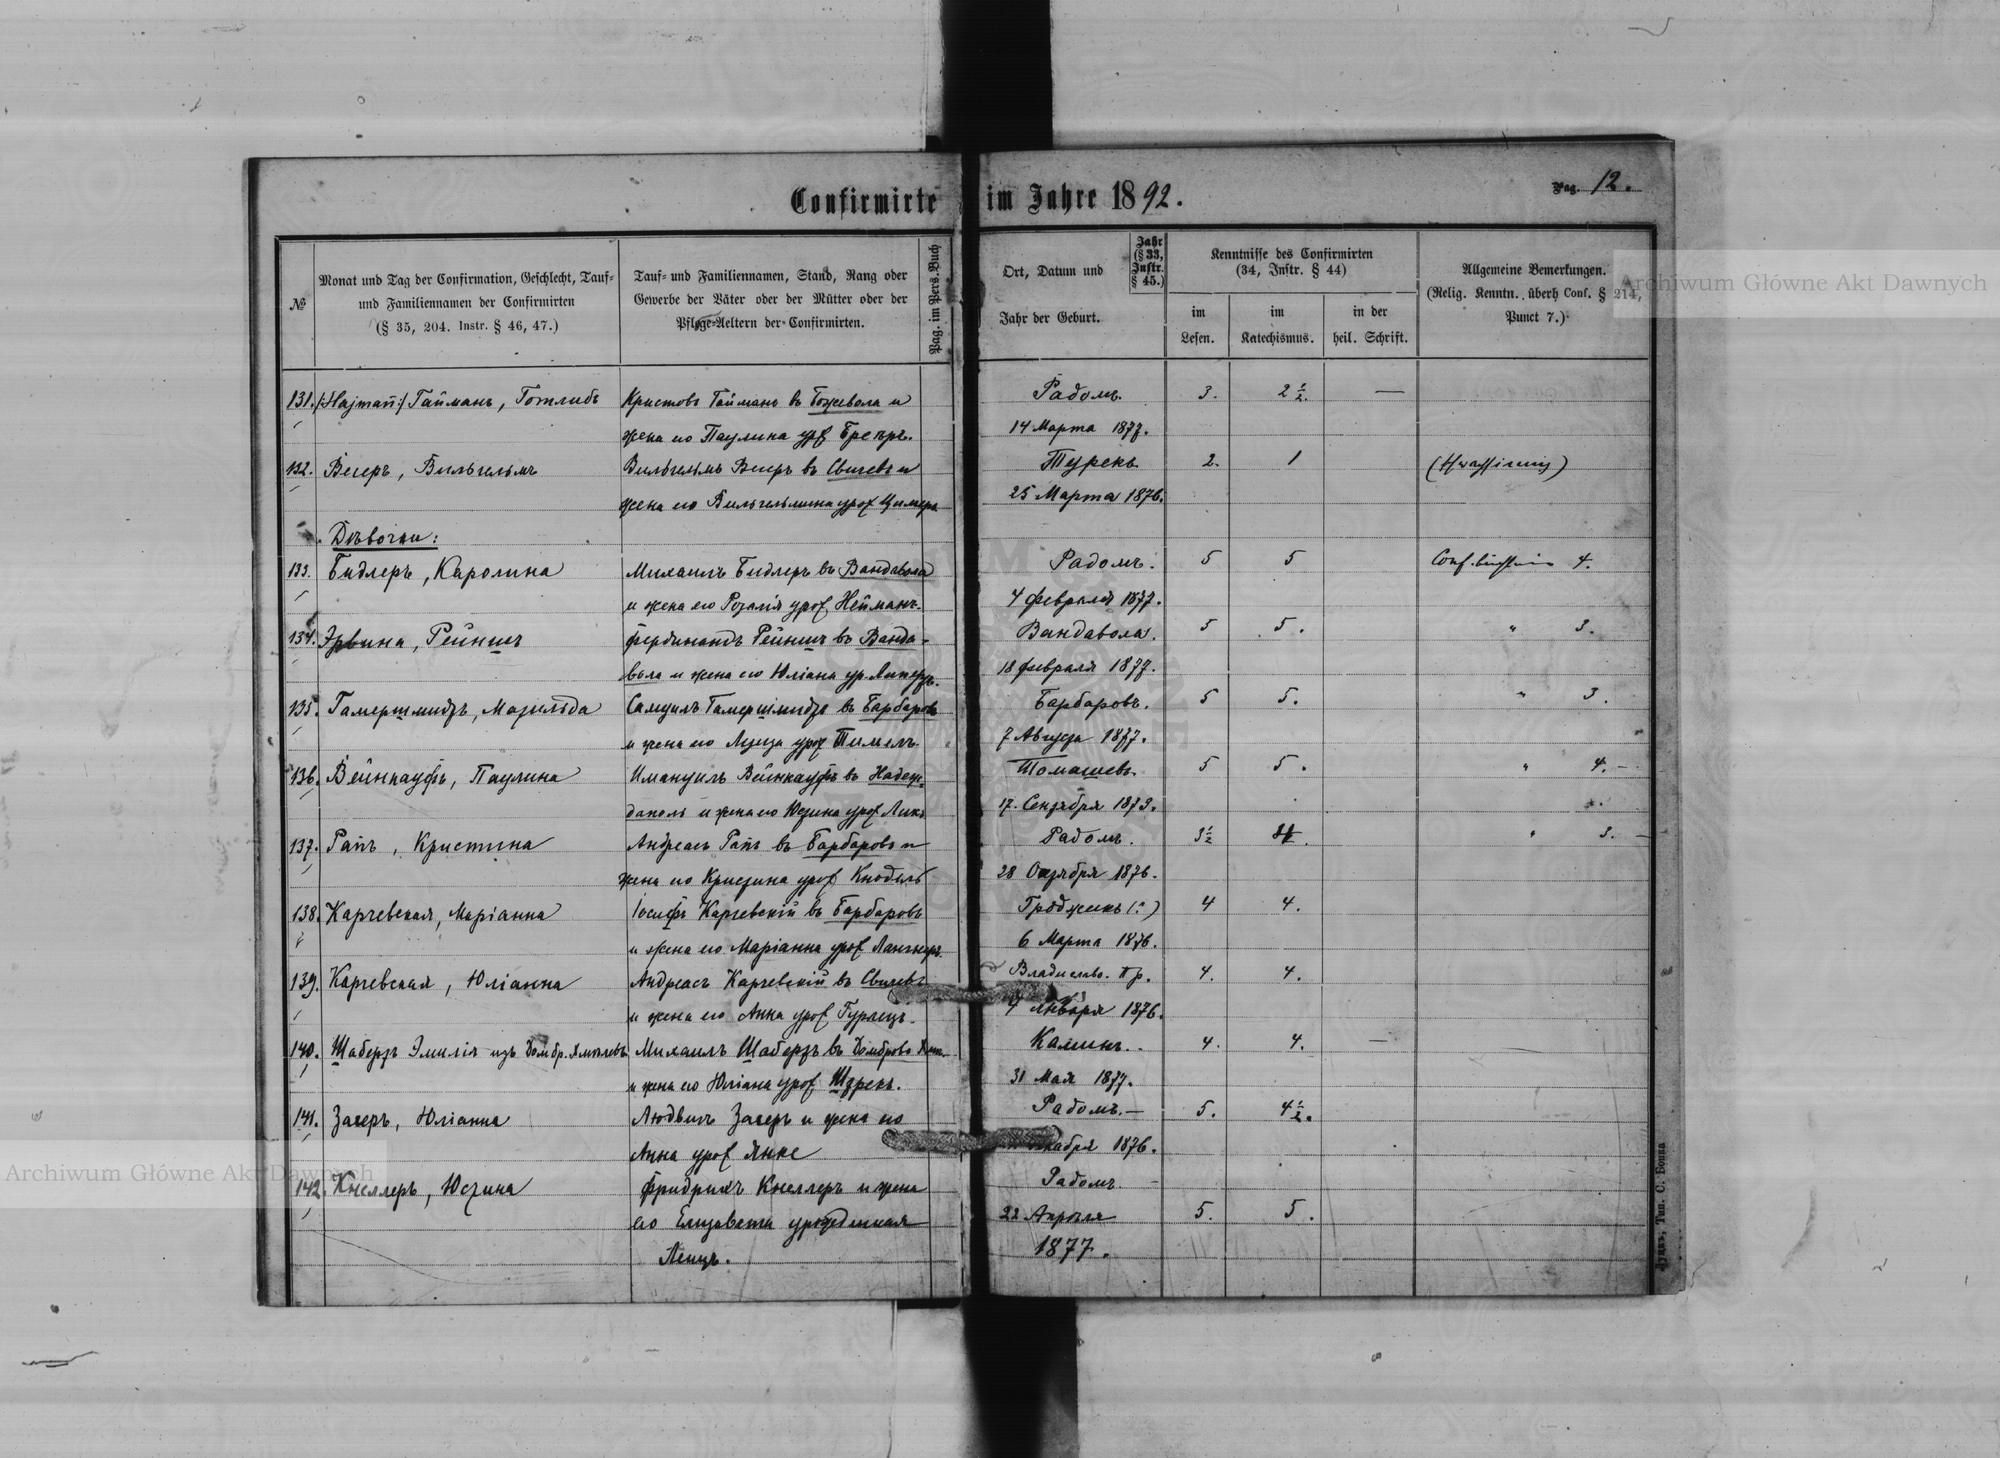 Confirmirte im Jahre 1892.
Pag. 12.
№
Monat und Tag der Confirmation, Geschlecht, Tauf-
und Familiennamen der Confirmirten
(§ 35, 204. Instr. § 46, 47.)
Tauf- und Familiennamen, Stand, Rang oder
Gewerbe der Väter oder der Mütter oder der
Pflege-Aeltern der Confirmirten.
Pag. im Pers. Buch
Ort, Datum und
Jahr der Geburt.
Jahr
(§ 33,
Instr.
§ 45.)
Kenntnisse des Confirmirten
(34, Instr. § 44)
im
Lesen.
im
Katechismus.
in der
heil. Schrift.
Allgemeine Bemerkungen.
(Relig. Kenntn. überh Conf. § 214,
Punct 7.)
131. (Hajmañ) Гайманъ, Готлибъ Кристовъ Гайманъ въ Божевола и Радомъ. 3. 2 1/2. —
жена его Паулина 14 Марта 1877.
132. Вегеръ, Вильгельмъ Вильгельмъ Вегеръ въ и Турекъ. 2. 1
жена его Вильгельмина урож 25 Марта 1876.
Дѣвочки:
133. Бидлеръ, Каролина Михаилъ Бидлеръ въ Вандавола Радомъ. 5 5 4.
и жена его Розалія урож Нейманъ. 4 февраля 1877.
134. Эрвина, Рейнишъ фердинандъ Рейнишъ въ Ванда- Вандавола. 5 5. " 3.
вола и жена его Юліана ур. 18 февраля 1877.
135. Гамершмидтъ, Матильда Самуилъ Гамершмидтъ въ Барбаровъ Барбаровъ. 5 5. " 3.
и жена его урож 7 Августа 1877.
136. Вейнкауфъ, Паулина Имануилъ Вейнкауфъ въ Надеж- Томашевъ. 5 5. " 4. -
даполь и жена его Юстина урож 17. Сентября 1873.
137. Рапъ, Кристина Андреасъ Рапъ въ Барбаровъ и Радомъ. 3 1/2 " 3. -
жена его Кристина урож Кнодель 28 Октября 1876.
138. Карчевская, Маріанна Іосифъ Карчевскій въ Барбаровъ 4 4.
и жена его Маріанна урож 6 Марта 1876.
139. Карчевская, Юліанна Андреасъ Карчевскій въ Владиславо. Пр. 4. 4.
и жена его Анна урож 4 Января 1876.
140. Шабертъ Эмилія изъ Домбр. Михаилъ Шабертъ въ Домброва Калишъ. 4. 4. —
и жена его Юліана урож 31 Мая 1877.
141. Загеръ, Юліанна Людвигъ Загеръ и жена его Радомъ. — 5. 4 1/2.
Анна урож Янке 1876.
142. Кнеллеръ, Юстина фридрихъ Кнеллеръ и жена Радомъ.
его Елизавета урожденная 22 Апрѣля 5. 5.
Ленцъ. 1877.
Луцкъ, Тип. С. Бонка
Archiwum Główne Akt Dawnych
Archiwum Główne Akt Dawnych